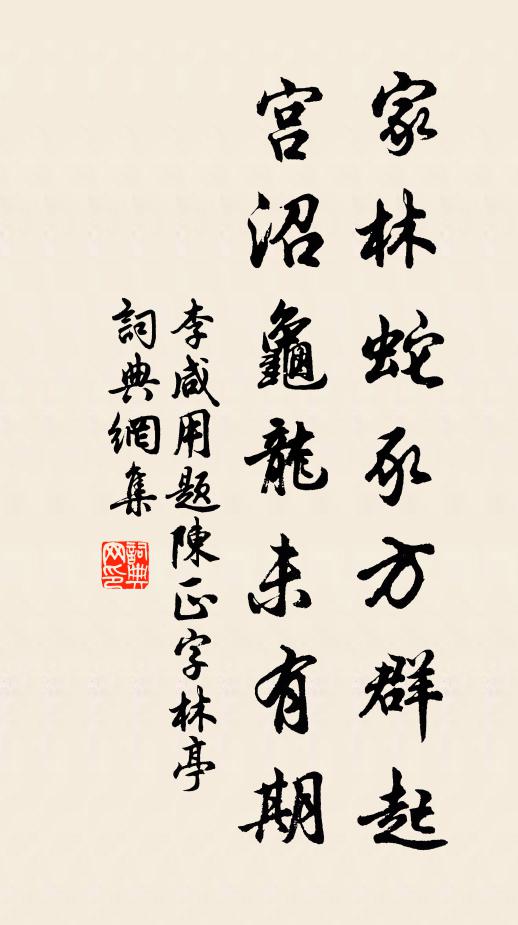 家林蛇豕方群起
宮沼龜龍未有期
李咸用題陳正字林亭
詞典網集
詞典网印